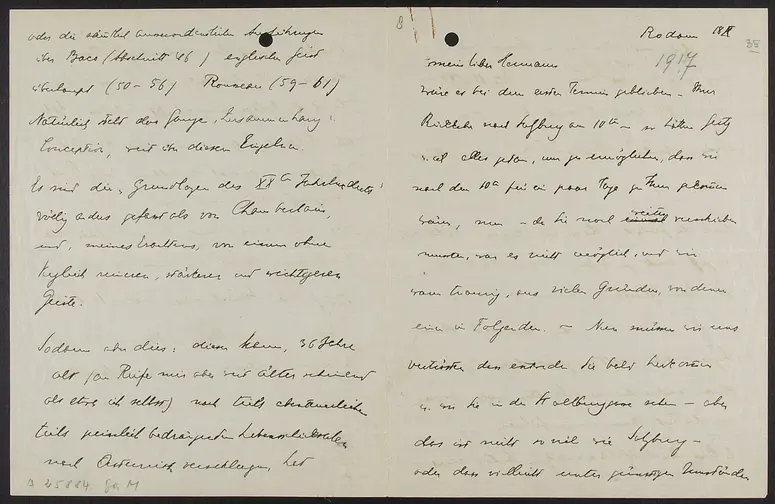 8
Rodaun 18 IX
35
1917
mein lieber Hermann
wäre es bei dem ersten Termin geblieben – Ihre
Rückkehr nach Salzburg am 10ten – so hätten
alles getan, um zu ermöglichen, dass wir
nach dem 10ten für ein paar Tage zu Ihnen gekommen
wären, nun – da Sie noch weiter verschieben
mussten, war es nicht möglich, und wir
waren traurig, aus vielen Gründen, von denen
einer im Folgenden. – Nun müssen wir uns
vertrösten dass entweder Sie bald herkommen
u. wir Sie in der Stallburggasse sehen – aber
das ist nicht so viel wie Salzburg –
oder dass vielleicht unter günstigen Umständen
oder die
über Baco (Abschnitt 46) englischen Geist
überhaupt (50–56) Rousseau (59–61)
Natürlich steht das Ganze, Zusammenhang,
Conception, weit über diesen Einzelnen.
Es sind die „Grundlagen des XXten Jahrhunderts"
völlig anders gefasst als von Chamberlain,
und, meines Erachtens, von einem ohne
Vergleich reineren, stärkeren und wichtigeren
Geiste.
Sodann aber dies: dieser Mann, 36 Jahre
alt (an Reife mir aber weit älter scheinend
als etwa ich selbst) nach teils abenteuerlichen
teils peinlich bedrängenden Lebensschicksalen
nach Österreich verschlagen, hat